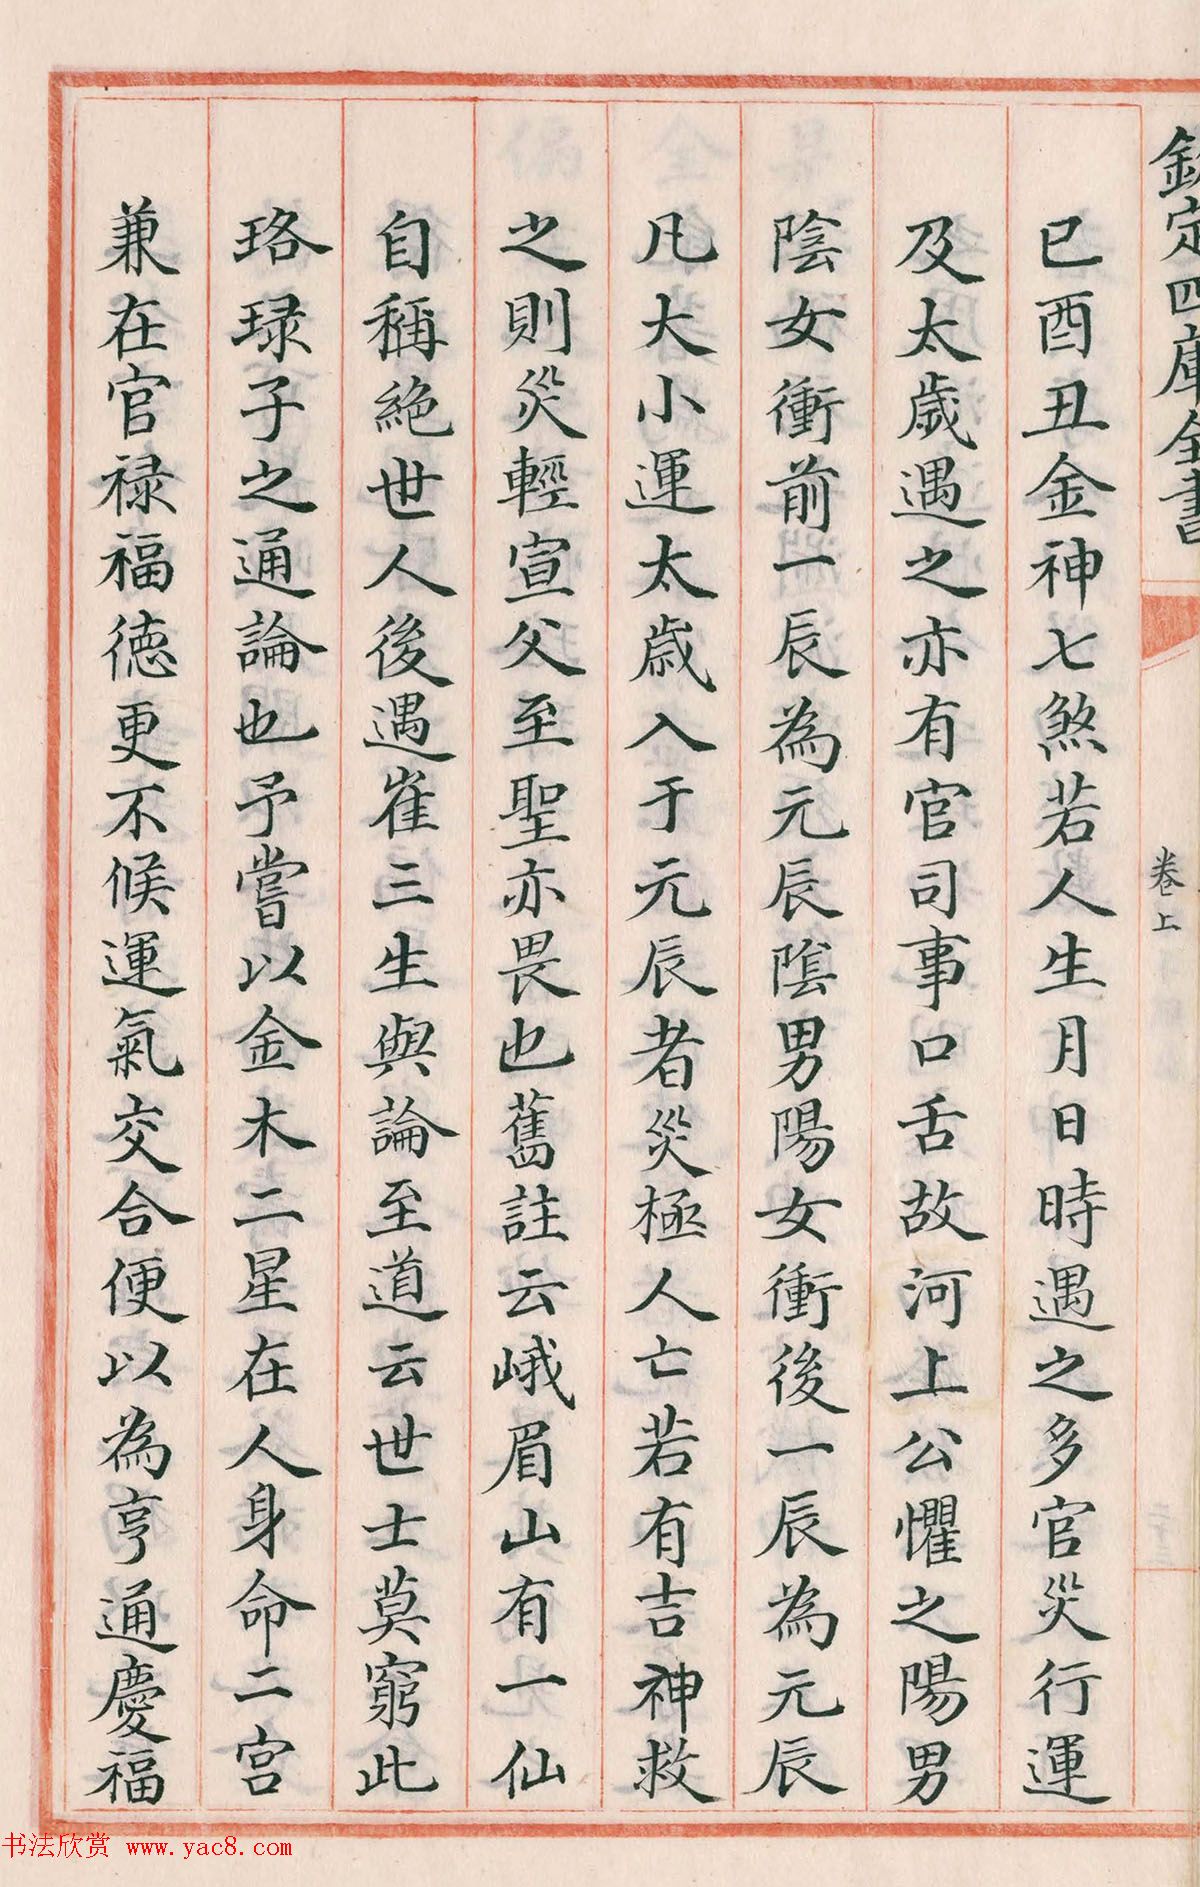 欽定四庫全書
卷上
巳酉丑金神七煞若人生月日時遇之多官災行運
及太歲遇之亦有官司事口舌故河上公懼之陽男
陰女衝前一辰為元辰陰男陽女衝後一辰為元辰
凡大小運太歲入于元辰者災極人亡若有吉神救
之則災輕宣父至聖亦畏也舊註云峨眉山有一仙
自稱絶世人後遇崔三生與論至道云世士莫窮此
珞琭子之通論也予嘗以金木二星在人身命二宫
兼在官禄福德更不候運氣交合便以為亨通慶福
书法欣赏 www.yac8.com